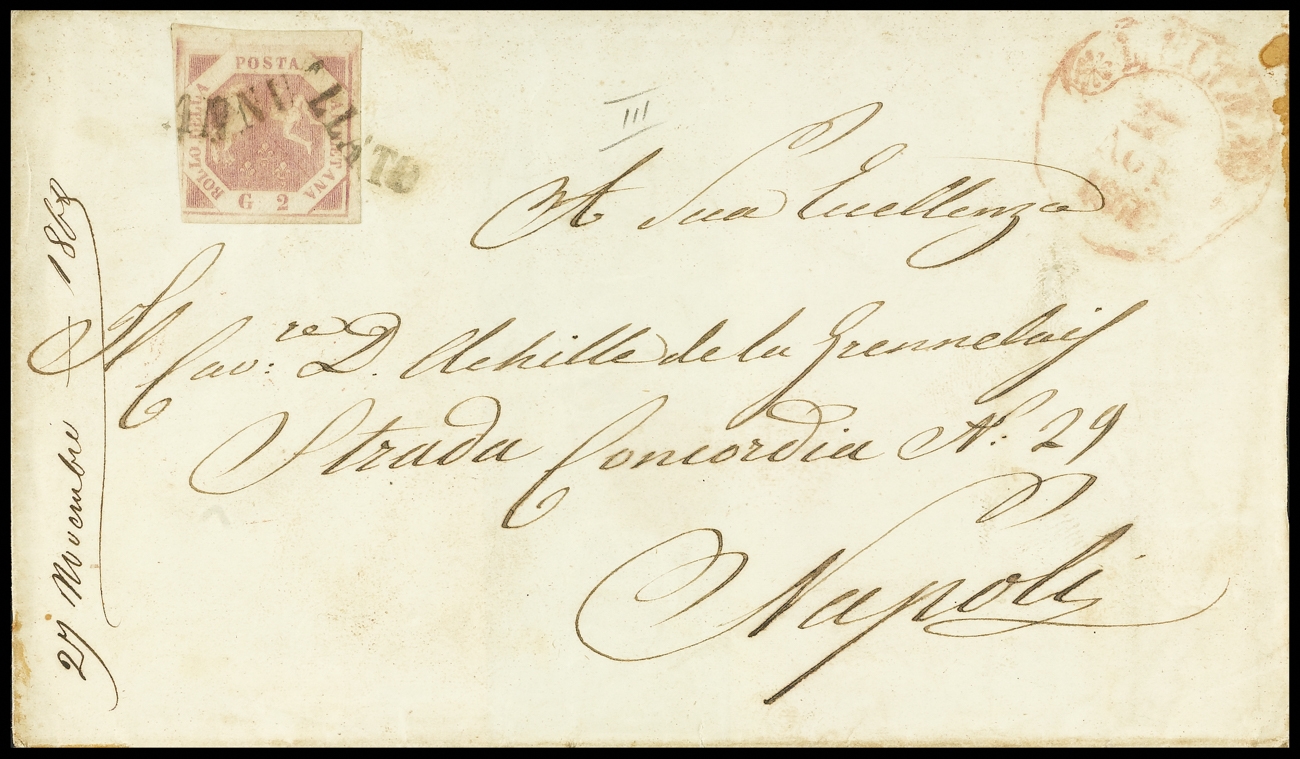 POSTA
BOLLO DELLA
ETANA
G 2
ANNULLATO
III
A Sua Eccellenza
Il Cav:re D. Achille de la Grennelais
Strada Concordia N.° 29
Napoli
27 Novembre 1860